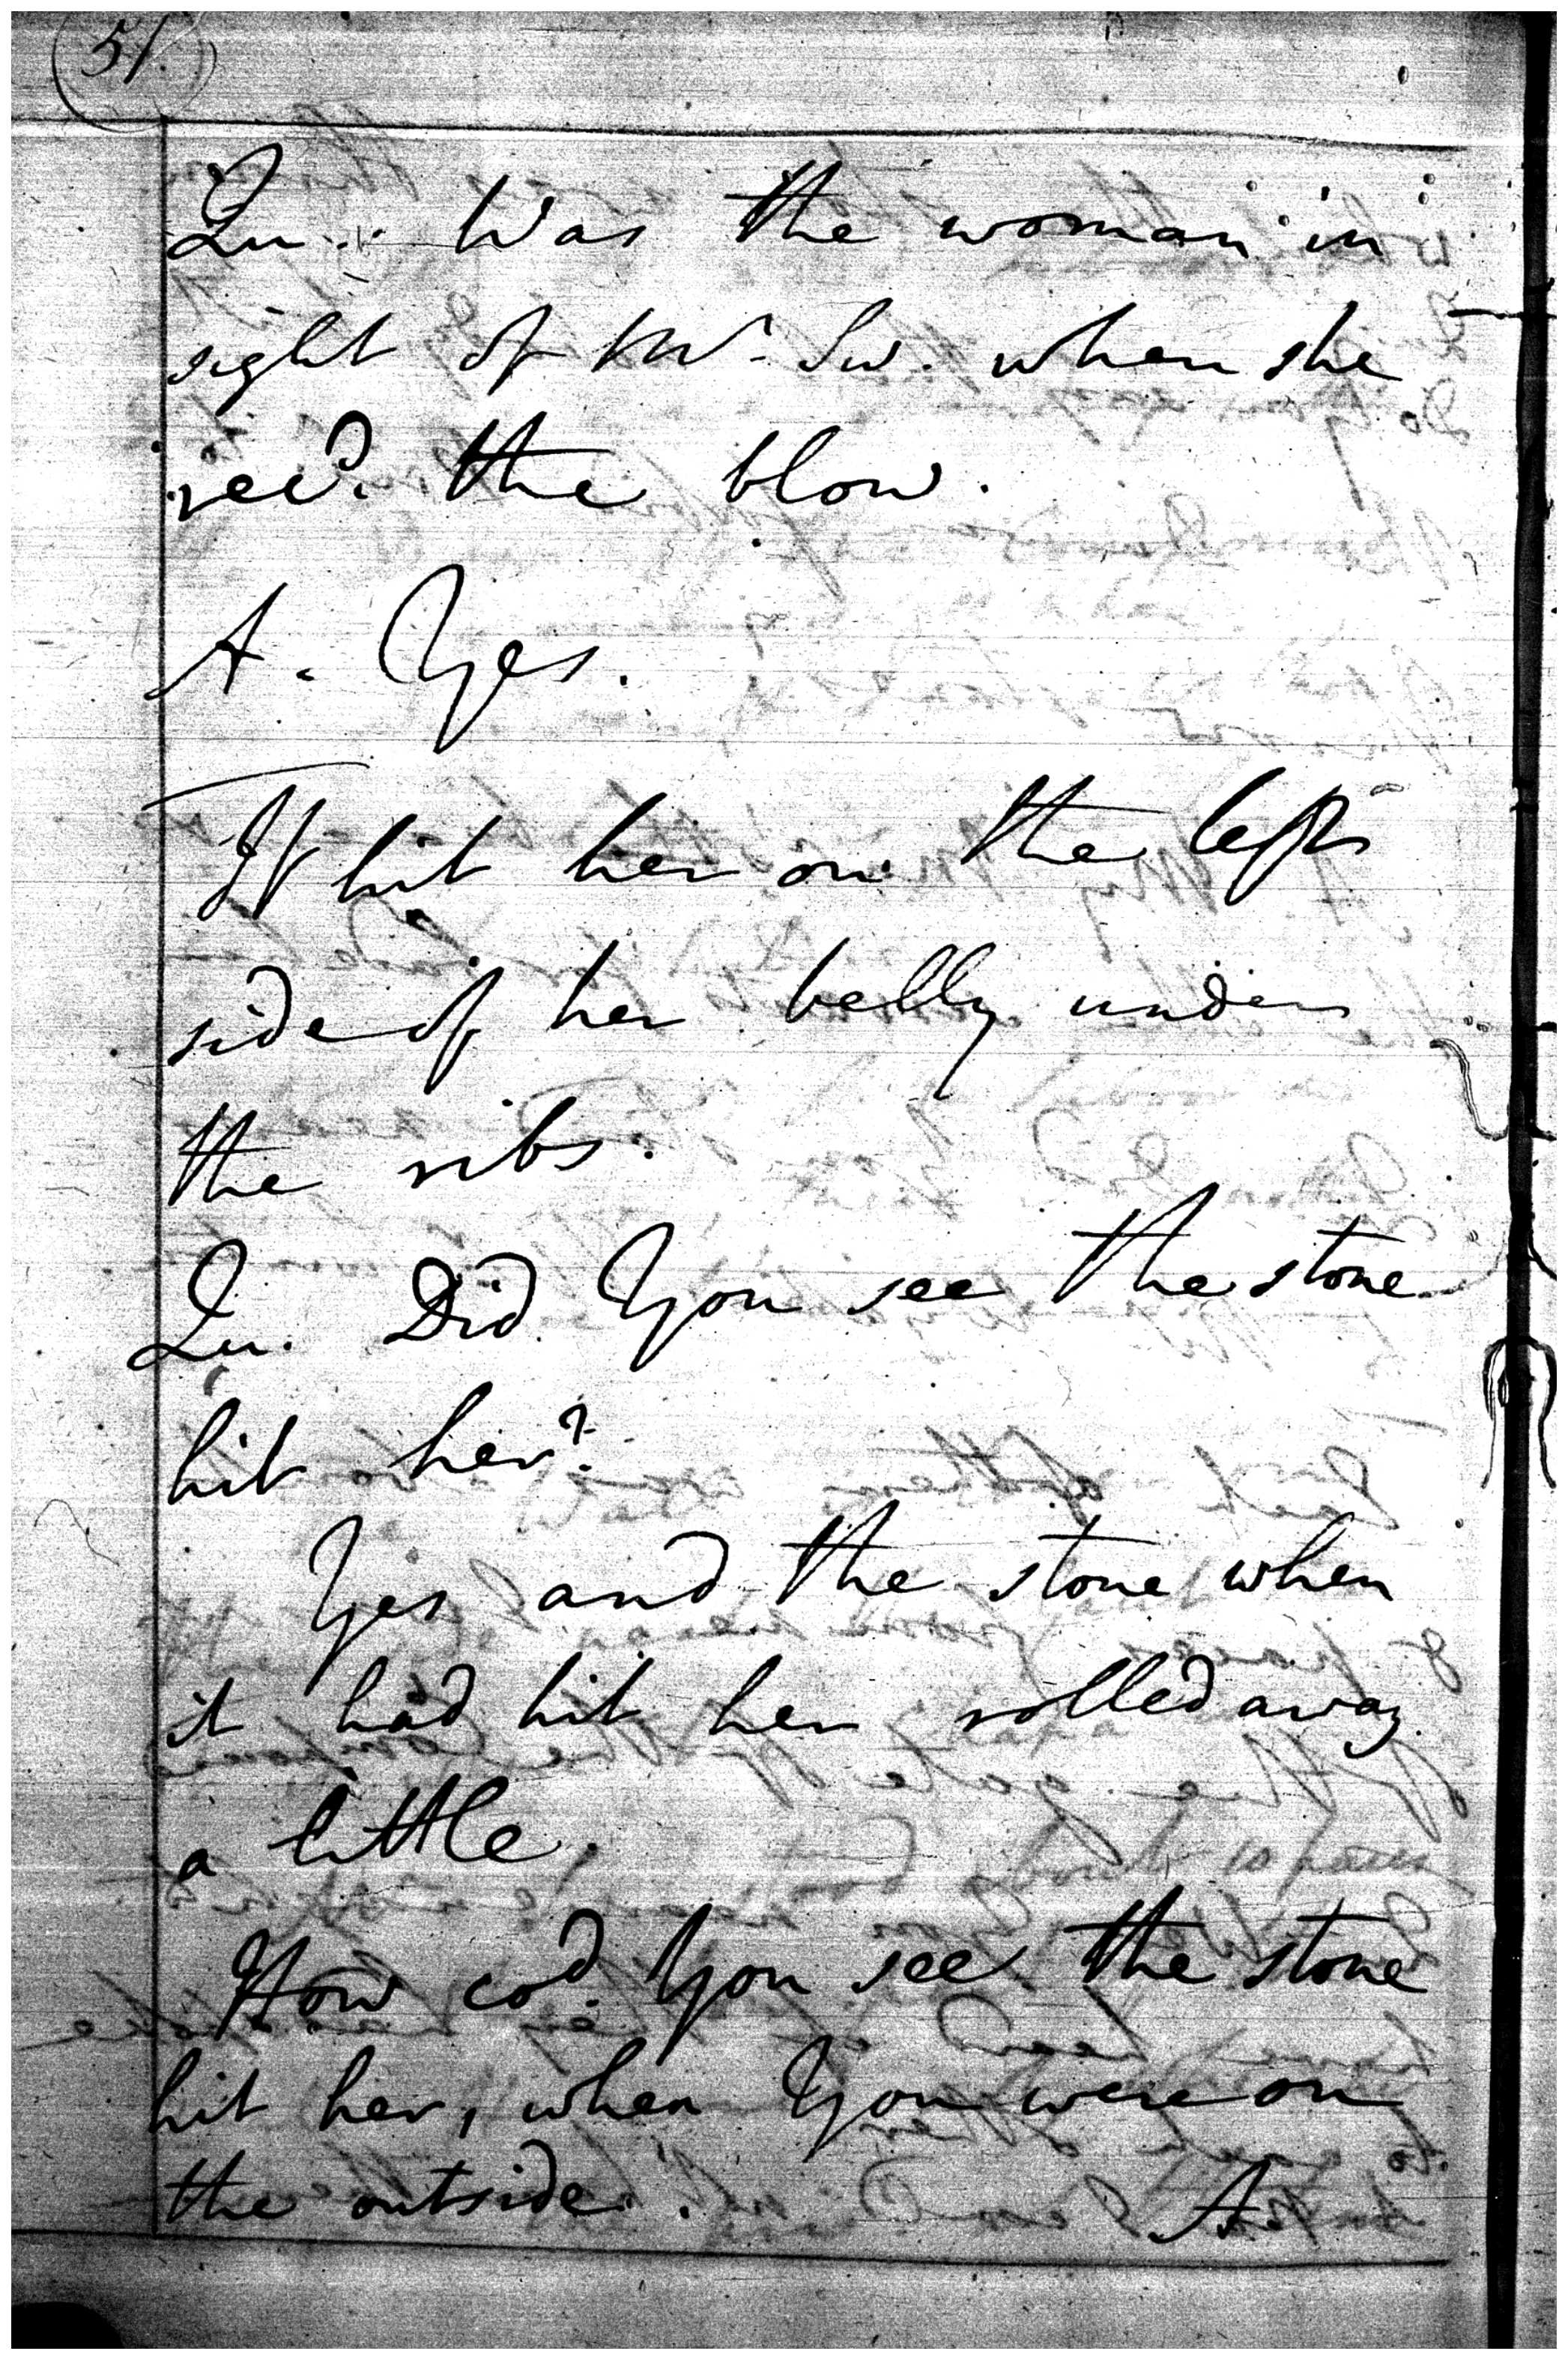 51.
Qu. Was the woman in
sight of Mr. Sw. when she
recd. the blow.
A. Yes.
It hit her on the left
side of her belly under
the ribs.
Qu. Did You see the stone
hit her?
Yes and the stone when
it had hit her rolled away
a little.
How cod. You see the stone
hit her, when You were on
the outside. A